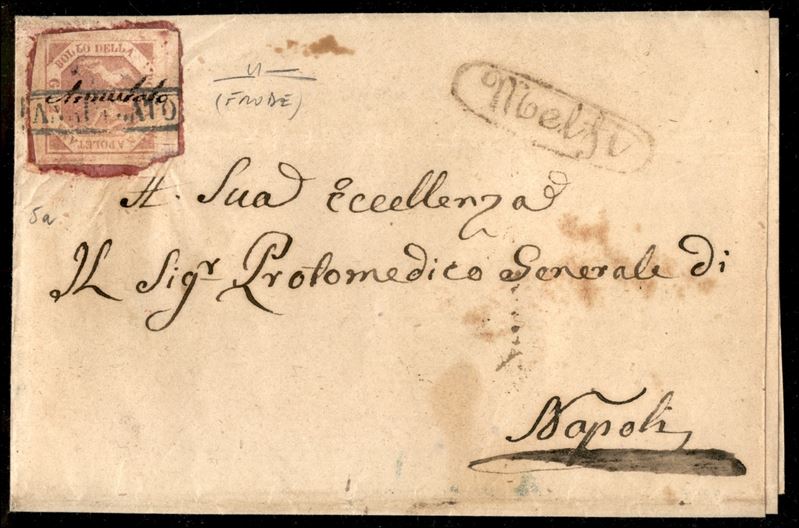 BOLLO DELLA
Annullato
ANNULLATO
NAPOLETA
u
(FRODE)
Melfi
5a
A Sua Eccellenza
Il Sigr Protomedico Generale di
Napoli